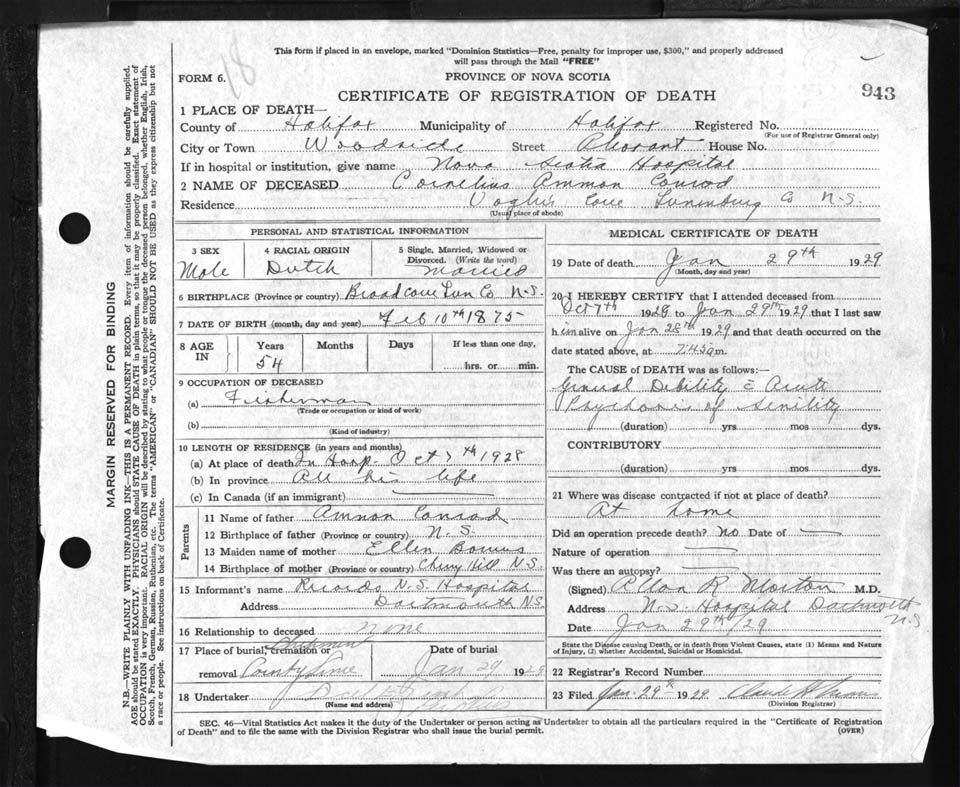 This form if placed in an envelope, marked "Dominion Statistics—Free, penalty for improper use, $300," and properly addressed
will pass through the Mail "FREE"
FORM 6.
PROVINCE OF NOVA SCOTIA
943
CERTIFICATE OF REGISTRATION OF DEATH
1 PLACE OF DEATH—
County of Halifax Municipality of Halifax Registered No.
(For use of Registrar General only)
City or Town Woodside Street Pleasant House No.
If in hospital or institution, give name Nova Scotia Hospital
2 NAME OF DECEASED Cornelius Ammon Conrad
Residence Voglers Cove Lunenburg Co N.S.
(Usual place of abode)
PERSONAL AND STATISTICAL INFORMATION
3 SEX
Male
4 RACIAL ORIGIN
Dutch
5 Single, Married, Widowed or
Divorced. (Write the word)
married
6 BIRTHPLACE (Province or country) Broad Cove Lun Co N.S.
7 DATE OF BIRTH (month, day and year) Feb 10th 1875
8 AGE
IN
Years
54
Months
Days
If less than one day,
hrs. or min.
9 OCCUPATION OF DECEASED
(a) Fisherman
(Trade or occupation or kind of work)
(b)
(Kind of industry)
10 LENGTH OF RESIDENCE (in years and months)
(a) At place of death In Hosp. Oct 7th 1928
(b) In province All his life
(c) In Canada (if an immigrant)
Parents
11 Name of father Ammon Conrad
12 Birthplace of father (Province or country) N.S.
13 Maiden name of mother Ellen
14 Birthplace of mother (Province or country) Cherry Hill N.S.
15 Informant's name Records N.S. Hospital
Address Dartmouth N.S.
16 Relationship to deceased none
17 Place of burial, cremation or
removal
Date of burial
Jan 29 1929
18 Undertaker
(Name and address)
MEDICAL CERTIFICATE OF DEATH
19 Date of death Jan 29th 1929
(Month, day and year)
20 I HEREBY CERTIFY that I attended deceased from
Oct 7th 1928 to Jan 29th 1929, that I last saw
him alive on Jan 28th 1929 and that death occurred on the
date stated above, at 7.45 a m.
The CAUSE of DEATH was as follows:—
General Debility c Acute
Psychosis of Senility
(duration) yrs mos dys.
CONTRIBUTORY
(duration) yrs. mos dys.
21 Where was disease contracted if not at place of death?
At home
Did an operation precede death? no Date of
Nature of operation
Was there an autopsy?
(Signed) Allan R Morton M.D.
Address N.S. Hospital Dartmouth N.S
Date Jan 29th/29
State the Disease causing Death, or in death from Violent Causes, state (1) Means and Nature
of Injury, (2) whether Accidental, Suicidal or Homicidal.
22 Registrar's Record Number
23 Filed Jan. 29 1929
(Division Registrar)
SEC. 46—Vital Statistics Act makes it the duty of the Undertaker or person acting as Undertaker to obtain all the particulars required in the "Certificate of Registration
of Death" and to file the same with the Division Registrar who shall issue the burial permit.
(OVER)
MARGIN RESERVED FOR BINDING
N.B.—WRITE PLAINLY WITH UNFADING INK—THIS IS A PERMANENT RECORD. Every item of information should be carefully supplied.
AGE should be stated EXACTLY. PHYSICIANS should STATE CAUSE OF DEATH in plain terms, so that it may be properly classified. Exact statement of
OCCUPATION is very important. RACIAL ORIGIN will be described by stating to what people or tongue the deceased person belonged, whether English, Irish,
Scotch, French, German, Russian, Ruthenian, etc. The terms "AMERICAN" or "CANADIAN" SHOULD NOT BE USED as they express citizenship but not
a race or people. See instructions on back of Certificate.